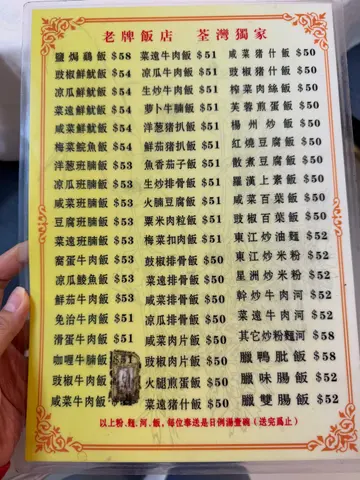 老牌飯店 荃灣獨家
鹽焗鷄飯 $58
豉椒鮮魷飯 $54
凉瓜鮮魷飯 $54
菜遠鮮魷飯 $54
咸菜鮮魷飯 $54
梅菜鯇魚飯 $54
洋葱班腩飯 $53
凉瓜班腩飯 $53
咸菜班腩飯 $53
豆腐班腩飯 $53
菜遠班腩飯 $53
窩蛋牛肉飯 $53
凉瓜鯪魚飯 $53
鮮茄牛肉飯 $53
免治牛肉飯 $51
滑蛋牛肉飯 $51
咖喱牛腩飯
豉椒牛肉飯
咸菜牛肉飯
菜遠牛肉飯 $51
凉瓜牛肉飯 $51
生炒牛肉飯 $51
萝卜牛腩飯 $51
洋葱豬扒飯 $51
鮮茄豬扒飯 $51
魚香茄子飯 $51
生炒排骨飯 $51
火腩豆腐飯 $51
粟米肉粒飯 $51
梅菜扣肉飯 $51
豉椒排骨飯 $50
菜遠排骨飯 $50
咸菜排骨飯 $50
凉瓜排骨飯 $50
咸菜肉片飯 $50
豉椒肉片飯 $50
火腿煎蛋飯 $50
菜遠豬什飯 $50
咸菜豬什飯 $50
豉椒豬什飯 $50
榨菜肉絲飯 $50
芙蓉煎蛋飯 $50
楊州炒飯 $50
紅燒豆腐飯 $50
散煮豆腐飯 $50
羅漢上素飯 $50
咸菜百葉飯 $50
豉椒百葉飯 $50
東江炒油麵 $52
東江炒米粉 $52
星洲炒米粉 $52
幹炒牛肉河 $52
菜遠牛肉河 $52
其它炒粉麵河 $58
臘鴨肶飯 $58
臘味腸飯 $52
臘雙腸飯 $52
以上粉、麵、河、飯，每位奉送是日例湯壹碗（送完爲止）